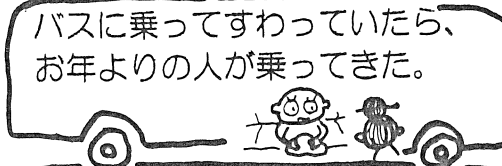 バスに乗ってすわっていたら、
お年よりの人が乗ってきた。